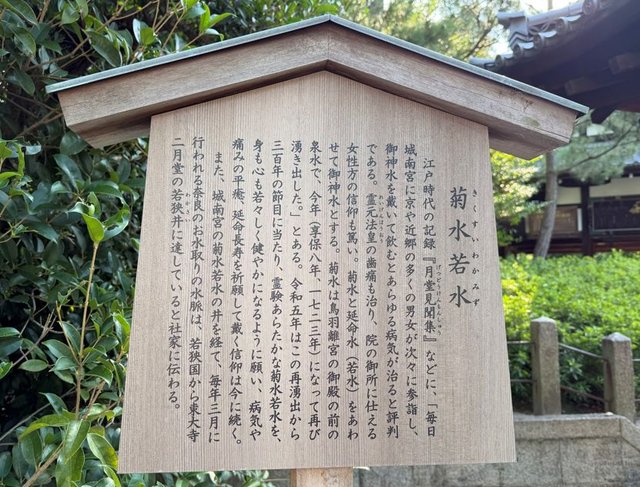 菊水若水
きくすいわかみず
江戸時代の記録『月堂見聞集』などに、「毎日
げつどうけんもんしゅう
城南宮に京や近郷の多くの男女が次々に参詣し、
御神水を戴いて飲むとあらゆる病気が治ると評判
である。霊元法皇の歯痛も治り、院の御所に仕える
れいげんほうおう
女性方の信仰も篤い。菊水と延命水（若水）をあわ
せて御神水とする。菊水は鳥羽離宮の御殿の前の
泉水で、今年（享保八年、一七二三年）になって再び
湧き出した。」とある。令和五年はこの再湧出から
三百年の節目に当たり、霊験あらたかな菊水若水を、
身も心も若々しく健やかになるように願い、病気や
痛みの平癒、延命長寿を祈願して戴く信仰は今に続く。
また、城南宮の菊水若水の井を経て、毎年三月に
行われる奈良のお水取りの水脈は、若狭国から東大寺
二月堂の若狭井に達していると社家に伝わる。
わかさい